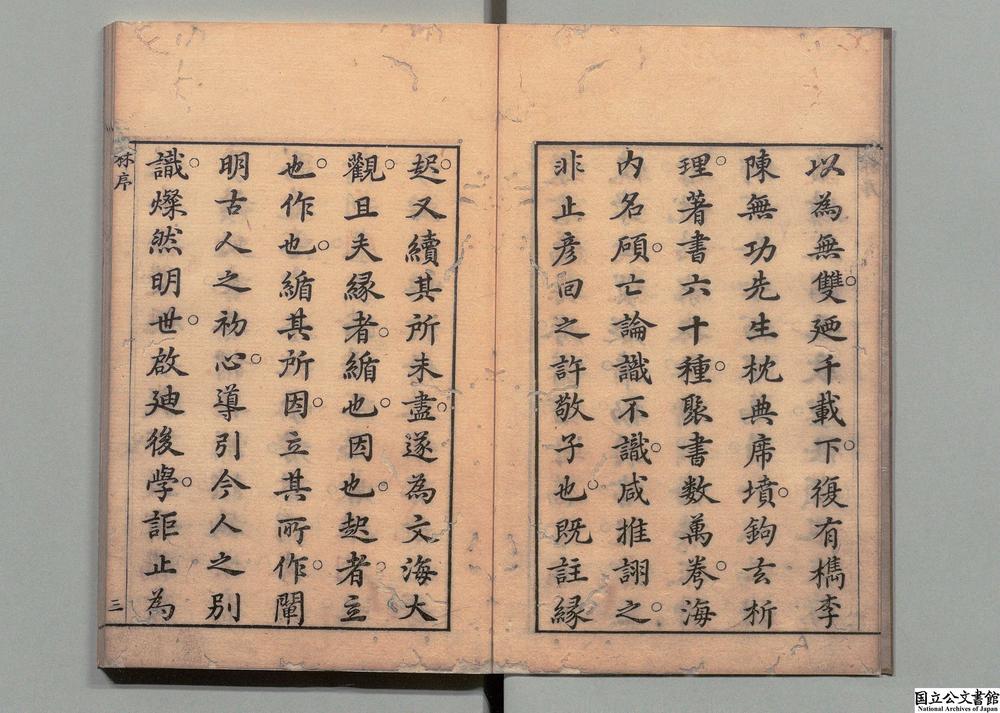 以為無雙廼千載下復有檇李
陳無功先生枕典席墳鉤玄析
理著書六十種聚書数萬巻海
内名碩亡論識不識咸推詡之
非止彥囬之許敬子也既註緣
起又續其所未盡遂為文海大
觀且夫緣者循也因也起者立
也作也循其所因立其所作闡
明古人之初心導引今人之別
識燦然明世啟廸後學詎止為
序
三
国立公文書館
National Archives of Japan